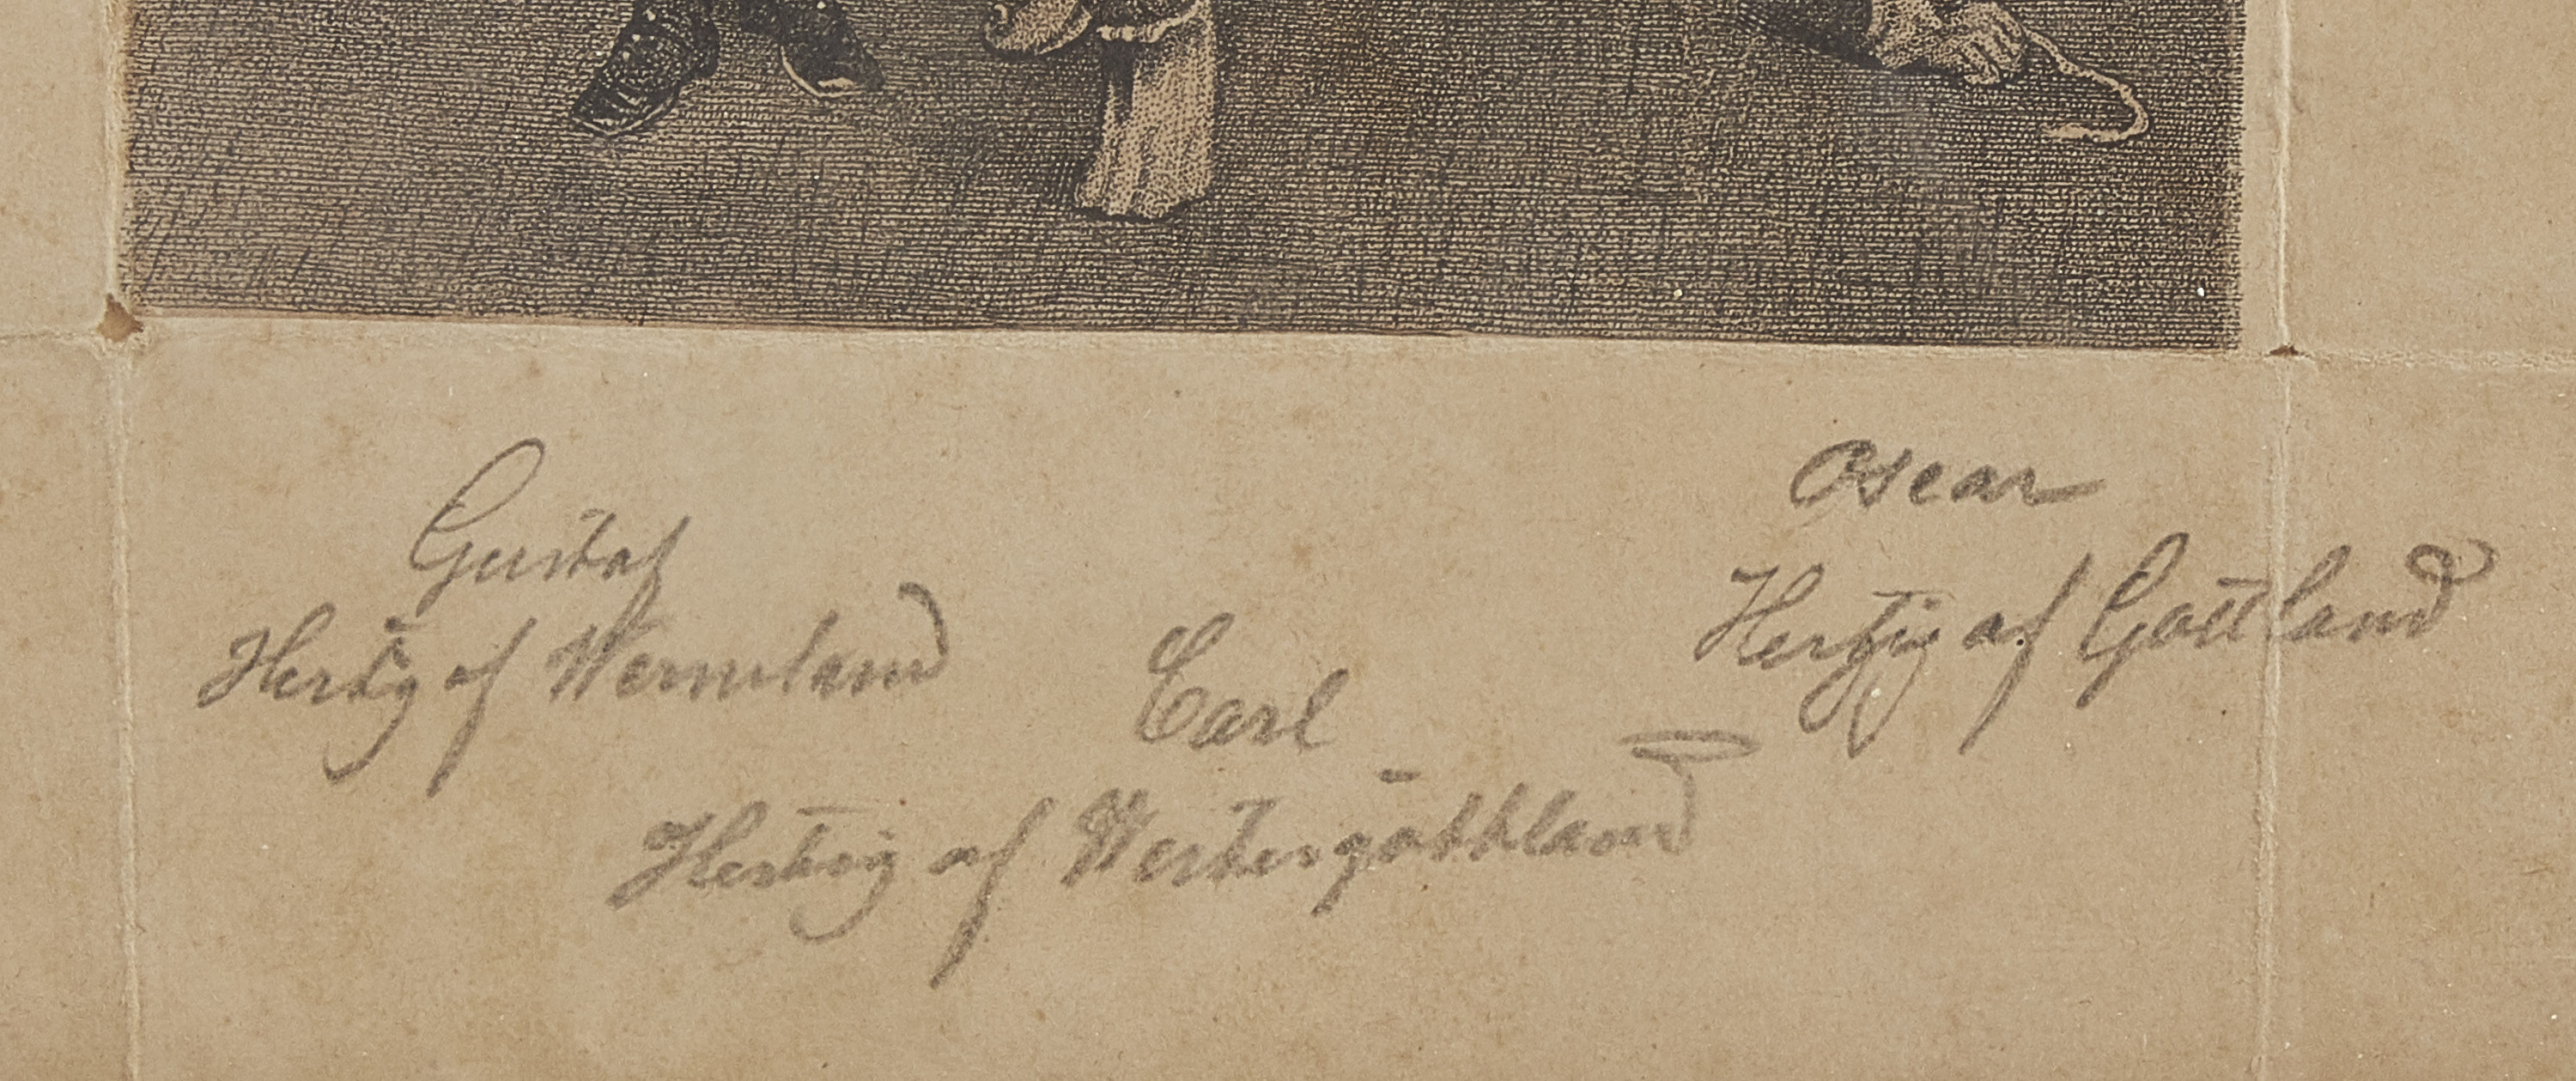 Gustaf
Hertig af Wermland
Carl
Hertig af Westergöthland
Oscar
Hertig af Gottland